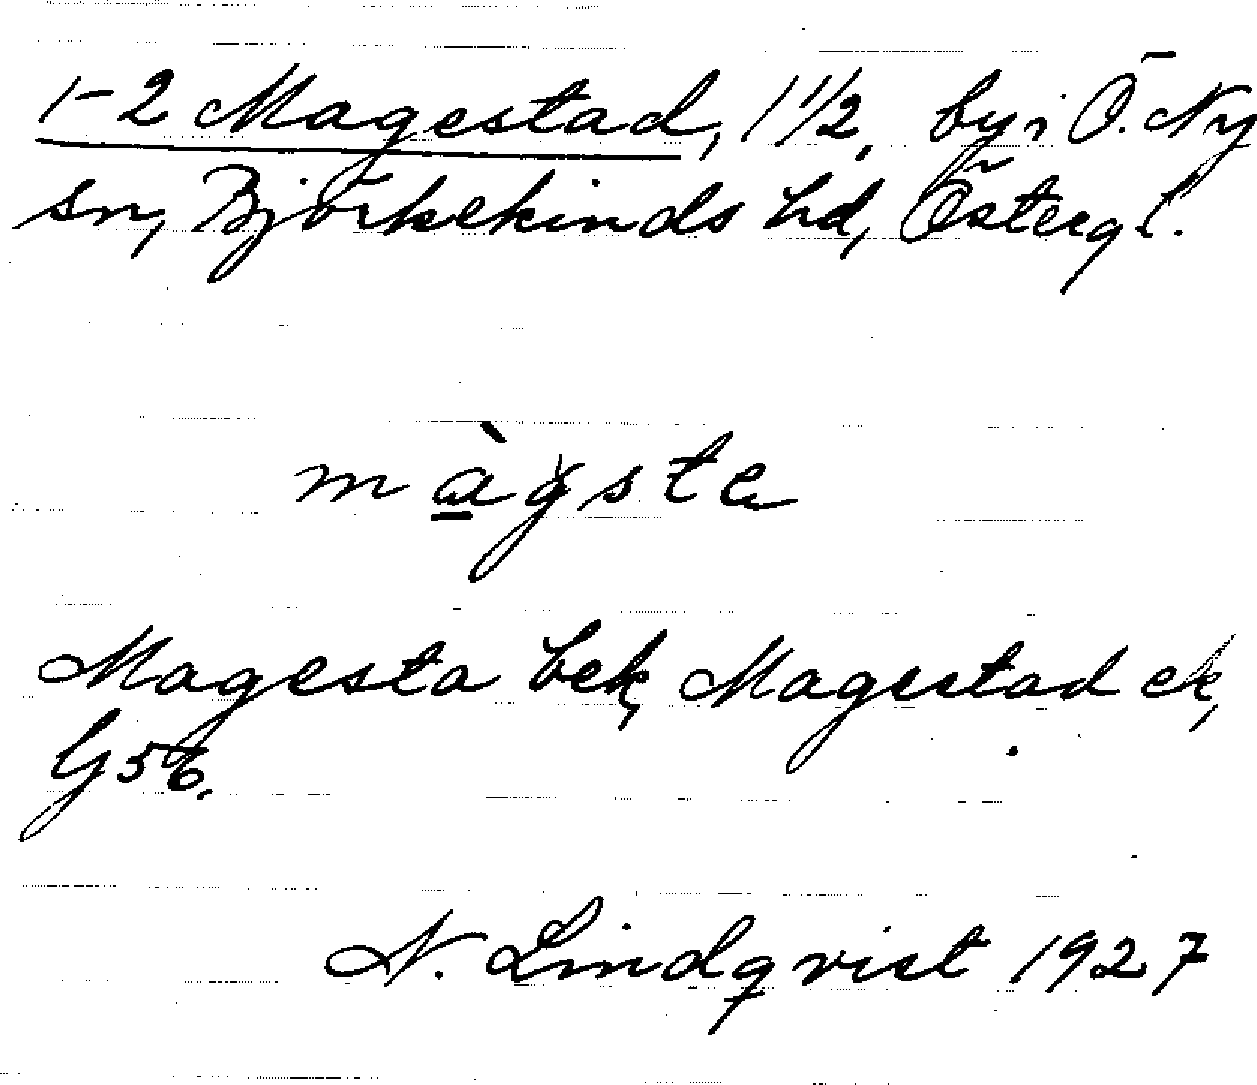 1-2 Magestad, 1 1/2, by i Ö. Ny
sn, Björkekinds hd, Östergl.
màgsta
Magesta bek, Magestad ek,
G 56.
N. Lindqvist 1927